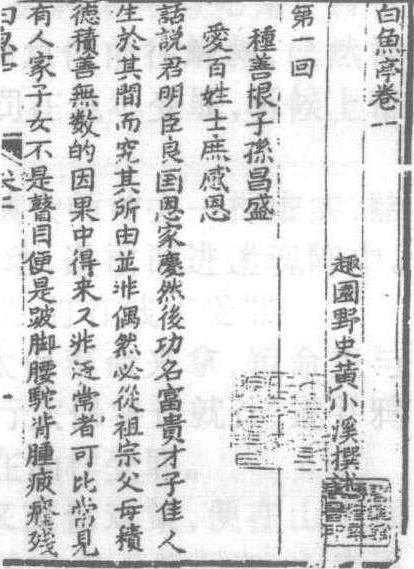 白魚亭卷一
趣園野史黃小溪撰述
第一回
種善根子孫昌盛
愛百姓士庶感恩
話說君明臣良国恩家慶然後功名富貴才子佳人
生於其間而究其所由並非偶然必從祖宗父母積
德積善無数的因果中得来又非泛常者可比常見
有人家子女不是瞽目便是跛脚腰駝背腫